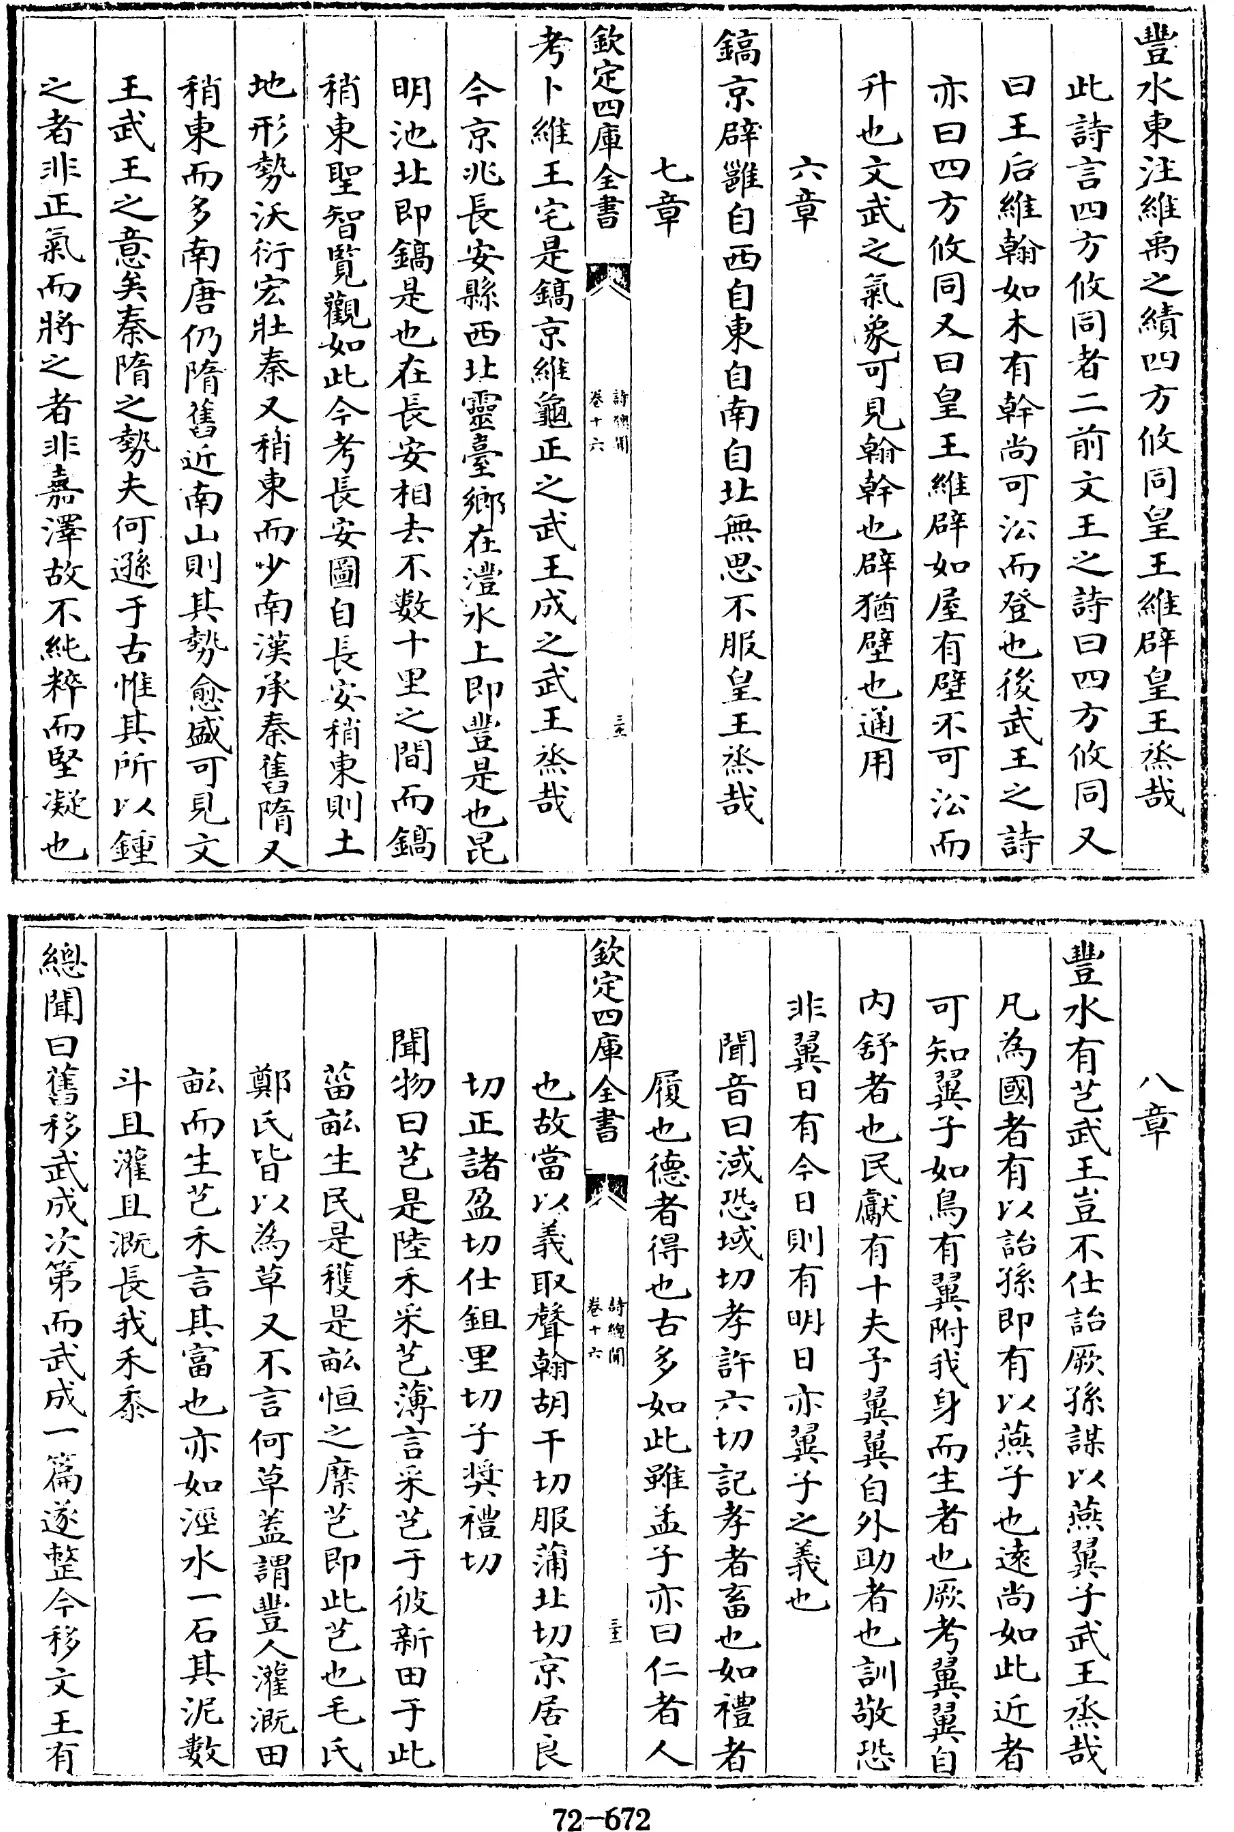 豐水東注維禹之績四方攸同皇王維辟皇王烝哉
此詩言四方攸同者二前文王之詩曰四方攸同又
曰王后維翰如木有幹尚可㳂而登也後武王之詩
亦曰四方攸同又曰皇王維辟如屋有壁不可㳂而
升也文武之氣象可見翰幹也辟猶壁也通用
六章
鎬京辟雝自西自東自南自北無思不服皇王烝哉
七章
欽定四庫全書
詩總聞
卷十六
考卜維王宅是鎬京維龜正之武王成之武王烝哉
今京兆長安縣西北靈臺鄉在灃水上即豐是也昆
明池北即鎬是也在長安相去不數十里之間而鎬
稍東聖智覽觀如此今考長安圖自長安稍東則土
地形勢沃衍宏壯秦又稍東而少南漢承秦舊隋又
稍東而多南唐仍隋舊近南山則其勢愈盛可見文
王武王之意矣秦隋之勢夫何遜于古惟其所以鍾
之者非正氣而將之者非嘉澤故不純粹而堅凝也
八章
豐水有芑武王豈不仕詒厥孫謀以燕翼子武王烝哉
凡為國者有以詒孫即有以燕子也遠尚如此近者
可知翼子如鳥有翼附我身而生者也厥考翼翼自
内舒者也民獻有十夫予翼翼自外助者也訓敬恐
非翼日有今日則有明日亦翼子之義也
聞音曰淢恐域切孝許六切記孝者畜也如禮者
履也德者得也古多如此雖孟子亦曰仁者人
欽定四庫全書
詩總聞
卷十六
也故當以義取聲翰胡干切服蒲北切京居良
切正諸盈切仕鉏里切子奬禮切
聞物曰芑是陸禾采芑薄言采芑于彼新田于此
菑畝生民是穫是畝恒之穈芑即此芑也毛氏
鄭氏皆以為草又不言何草葢謂豐人灌溉田
畝而生芑禾言其富也亦如涇水一石其泥數
斗且灌且溉長我禾黍
總聞曰舊移武成次第而武成一篇遂整今移文王有
72-672